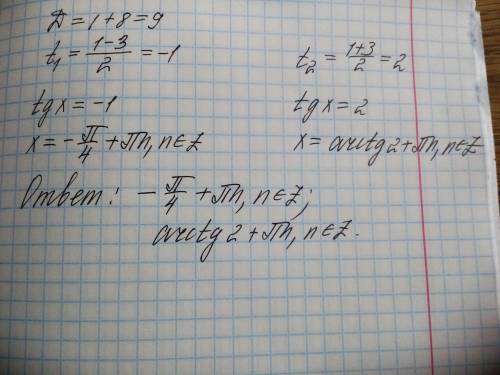 Д = 1 + 8 = 9
t₁ = (1-3)/2 = -1
t₂ = (1+3)/2 = 2
tgx = -1
tgx = 2
x = -π/4 + πn, n∈Z
x = arctg2 + πn, n∈Z
Ответ: -π/4 + πn, n∈Z;
arctg2 + πn, n∈Z.